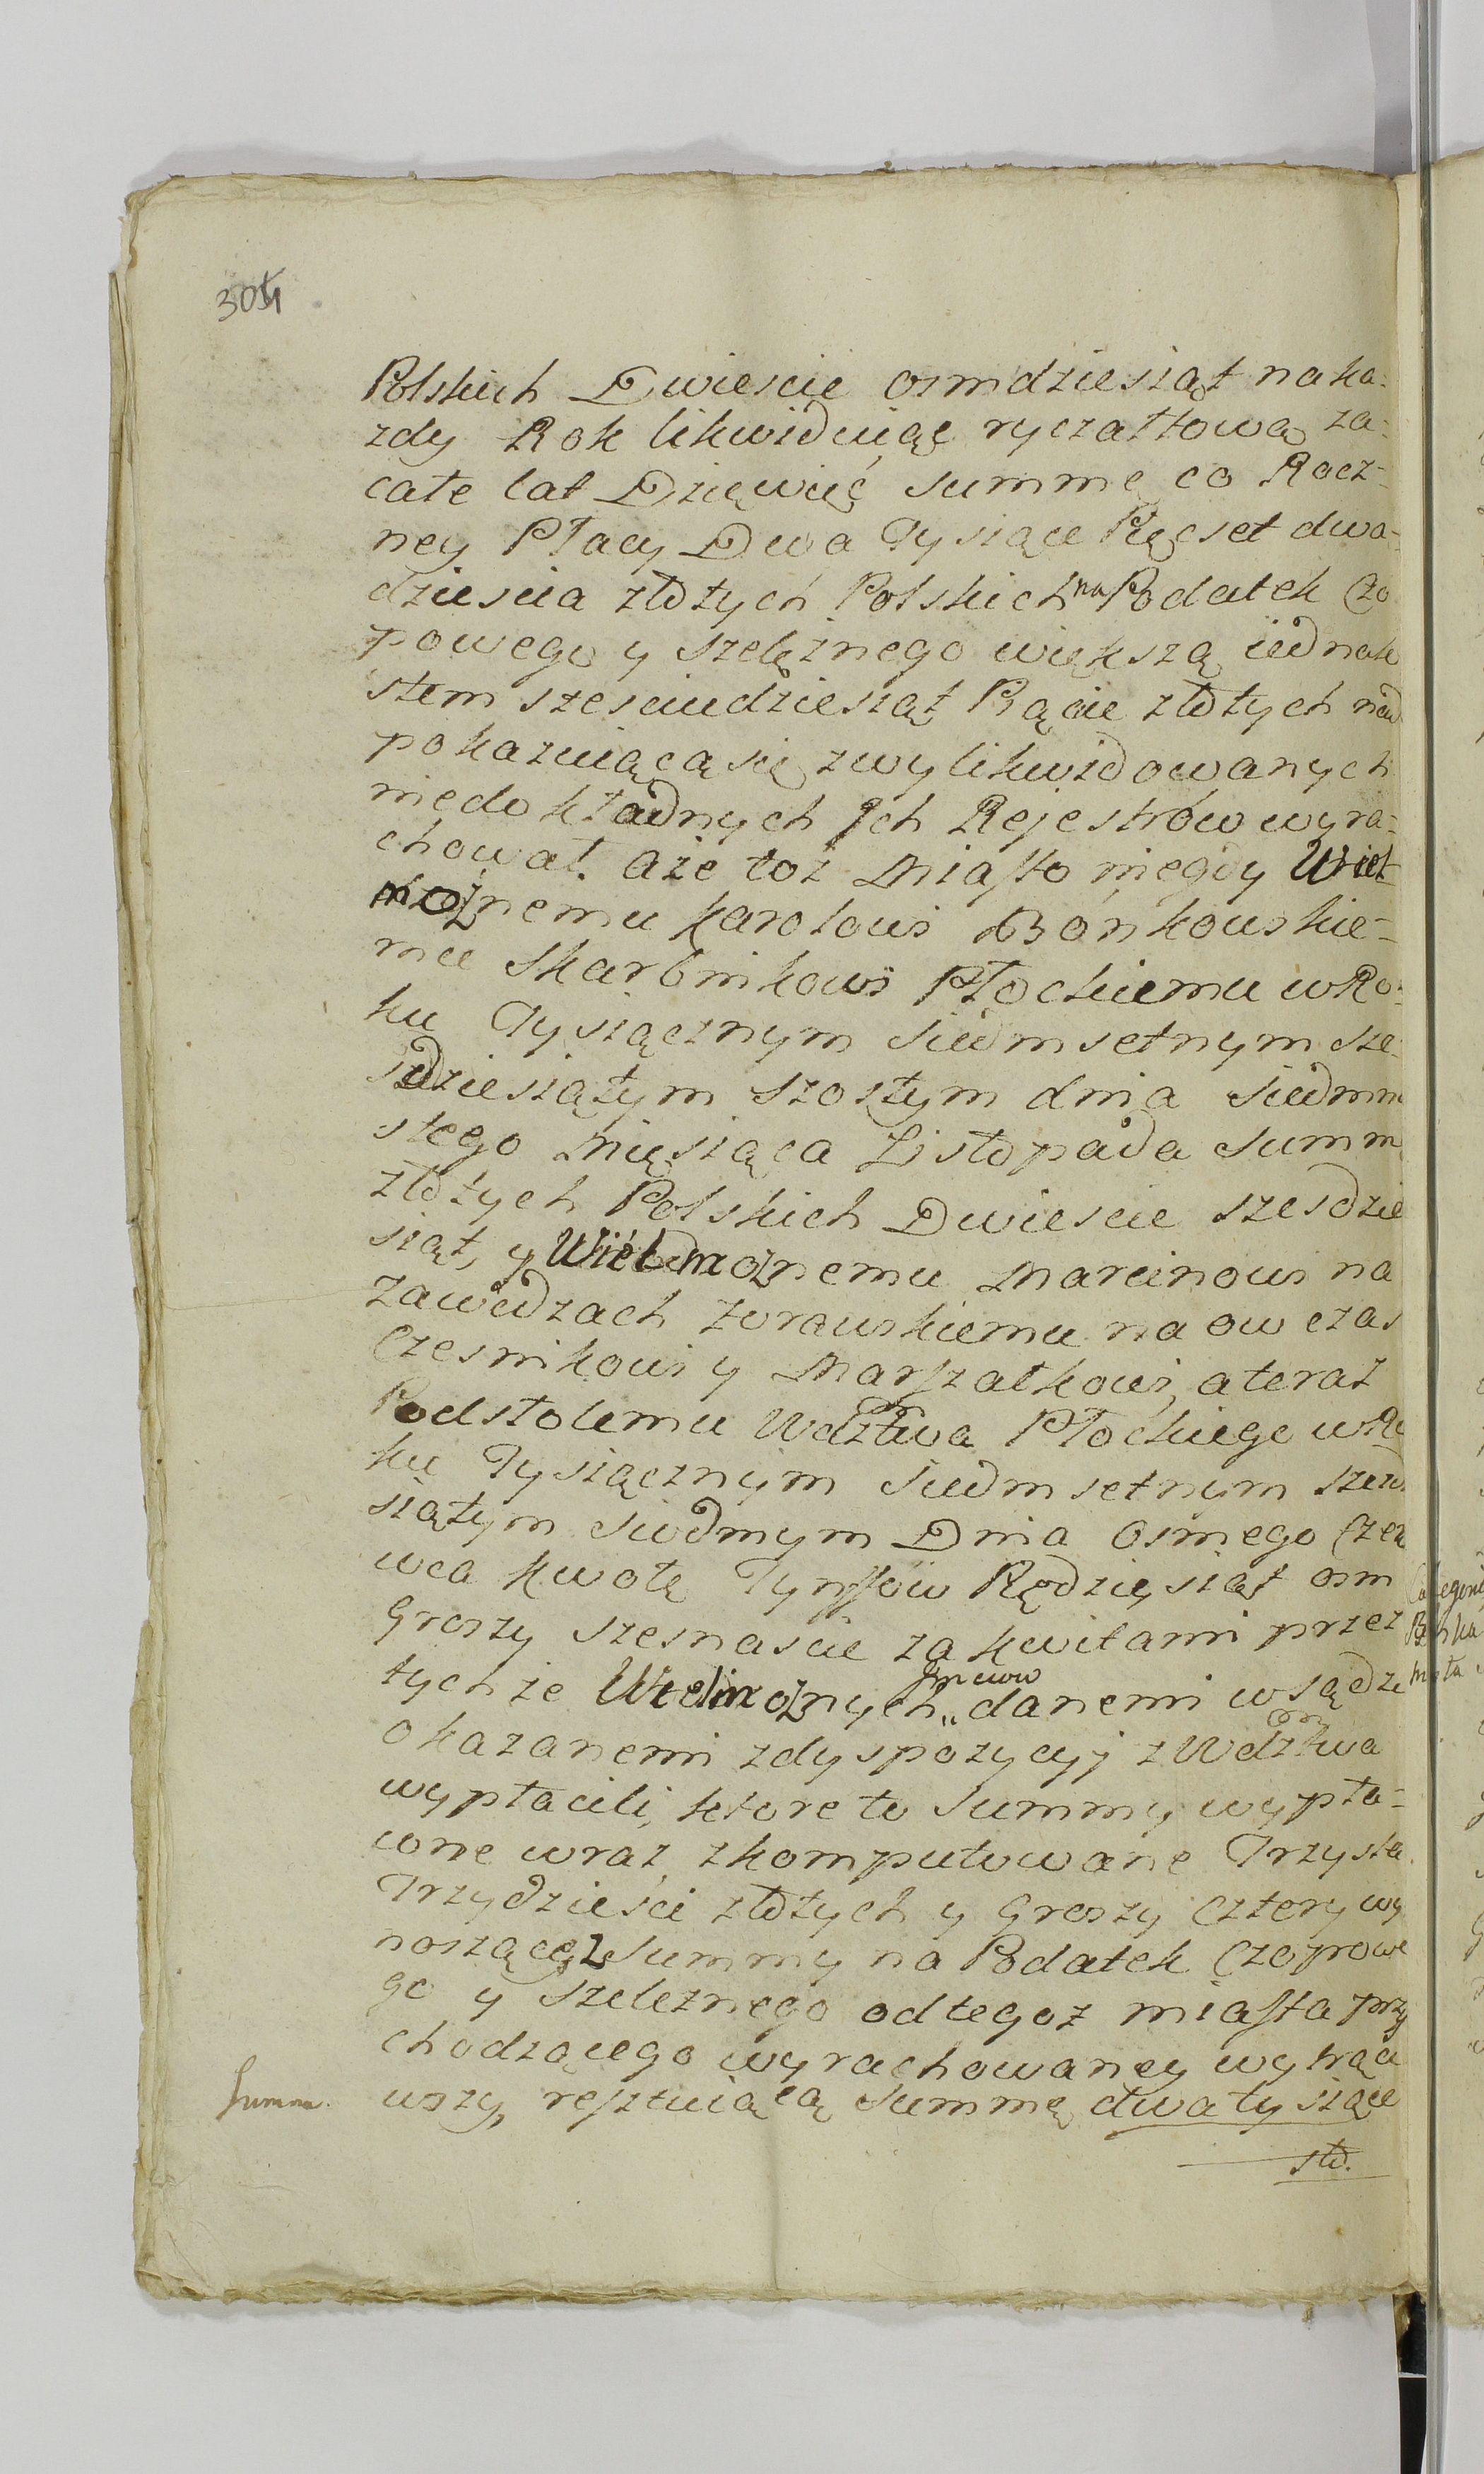 304
Polskich Dwiescie osmdziesiąt na ka:
zdy Rok likwiduiąc ryczałtową za:
całe lat Dziewięć summę co Rocz-
ney Płacy Dwa Tysiące Pięcset dwa-
dziescia złotych Polskich na Podatek Czo
powego y szelężnego większą iednak
stem szesciudziesiąt Pącie złotych nad
pokazuiącą się z wylikwidowanych
niedokładnych Ich Rejestrów wyra:
chował. aże toż Miasto niegdy Wiel-
możnemu Karolowi Bońkowskie-
mu Skarbnikowi Płockiemu w Ro:
ku Tysiącznym siedmsetnym sze:
sdziesiątym szostym dnia siedmna
stego Miesiąca Listopada summ
złotych Polskich Dwiescie szesdzie
siąt, y Wielmożnemu Marcinowi na
Zawidzach Żorawskiemu na ow czas
Czesnikowi y Marszałkowi, a teraz
Podstolemu Wdztwa Płockiego w Ro
ku Tysiącznym siedmsetnym szezd
siątym siodmym Dnia osmego Czer
wca kwotę Tynffow Pędziesiąt osm
Groszy szesnascie za kwitami przez
tychże Wielmożnych Jmciow danemi w sądzie
okazanemi z dyspozycyi z Wdztwa
wypłacili, ktore to Summy wypła-
cone wraz zkomputowane Trzysta
Trzydzieści złotych y Groszy Cztery wy
noszące z Summy na Podatek Czopowe
go y szelężnego od tegoz miasta przy
chodzącego wyrachowaney wytrąci
Summa. wszy, resztuiącą Summę dwa tysiące
sto.